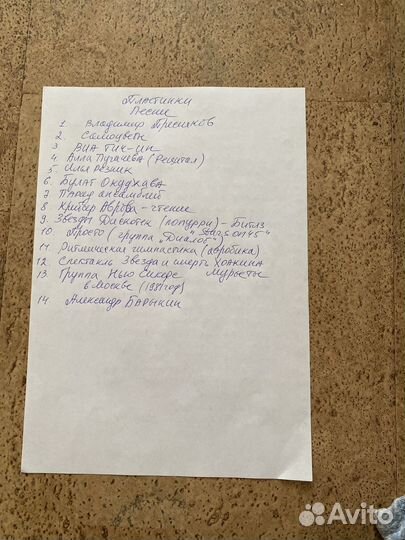 Пластинки
Песни
1. Владимир Пресняков
2. Самоцветы
3 ВИА Тич-ин
4 Алла Пугачева (Рецитал)
5. Илья Резник
6. Булат Окуджава
7. Парад ансамблей
8 Крейсер Аврора - чтение
9. Звезды Дискотек (попурри) - Битлз
"Stars on 45"
10 Просто (группа "Диалог")
11. Ритмическая гимнастика (аэробика)
12. Спектакль Звезда и смерть Хоакина
Мурьеты
13 Группа Нью Сикерс
в Москве (1981 год)
14 Александр Барыкин
Avito